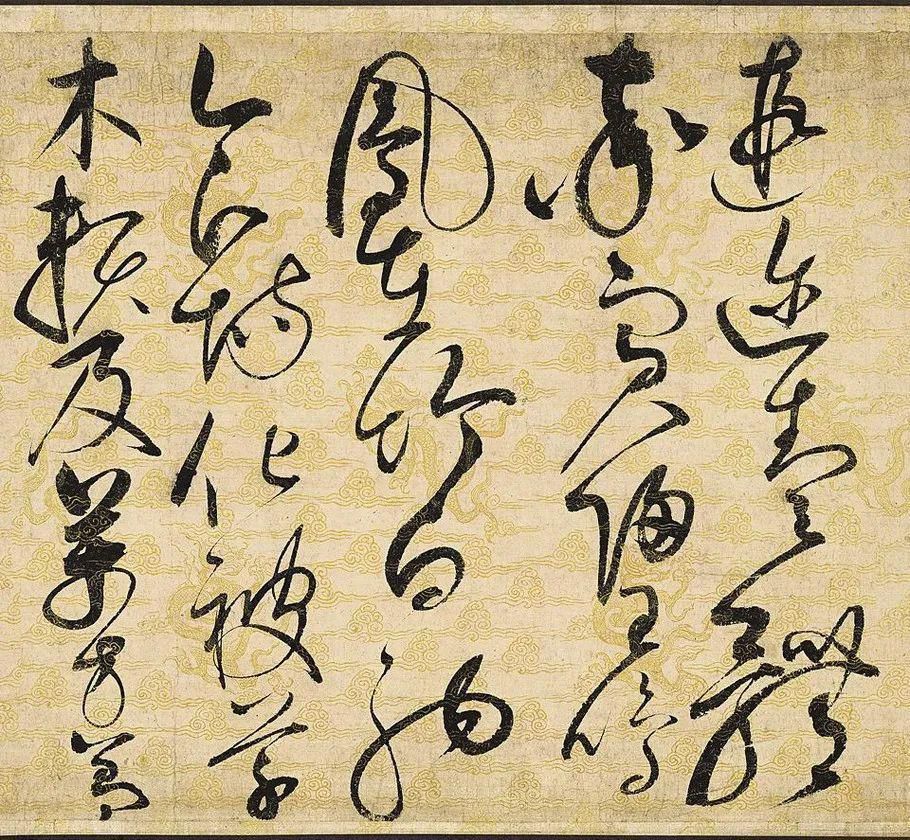 遐邇壹體
率賓歸王鳴
鳳在樹白駒
食場化被草
木賴及萬方蓋